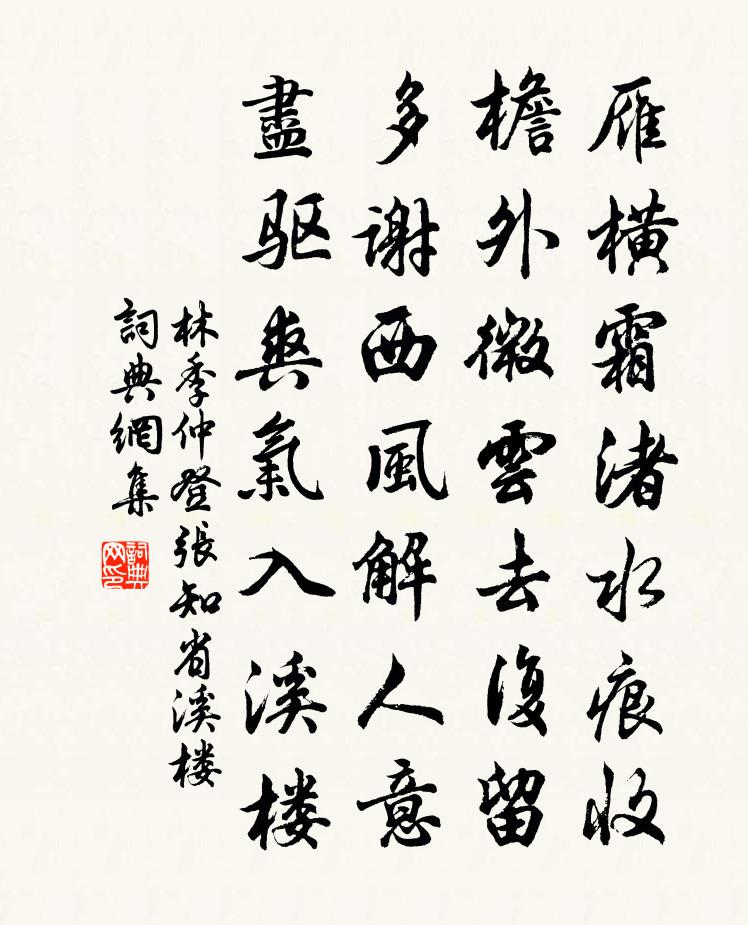 雁横霜渚水痕收
檐外微雲去復留
多谢西風解人意
盡驱爽氣入溪楼
林季仲登張知省溪楼
詞典網集
詞典网印